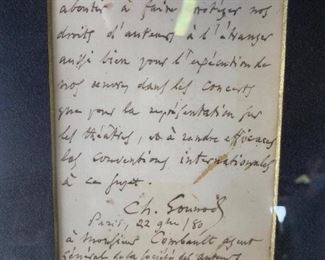 aboutir à faire protéger nos
droits d'auteurs à l'étranger
aussi bien pour l'exécution de
nos œuvres dans les concerts
que pour la représentation sur
les théâtres, et à rendre efficaces
les conventions internationales
à ce sujet.
Ch. Gounod
Paris, 22 9bre/80.
à Monsieur Combault agent
Général de la Société des auteurs